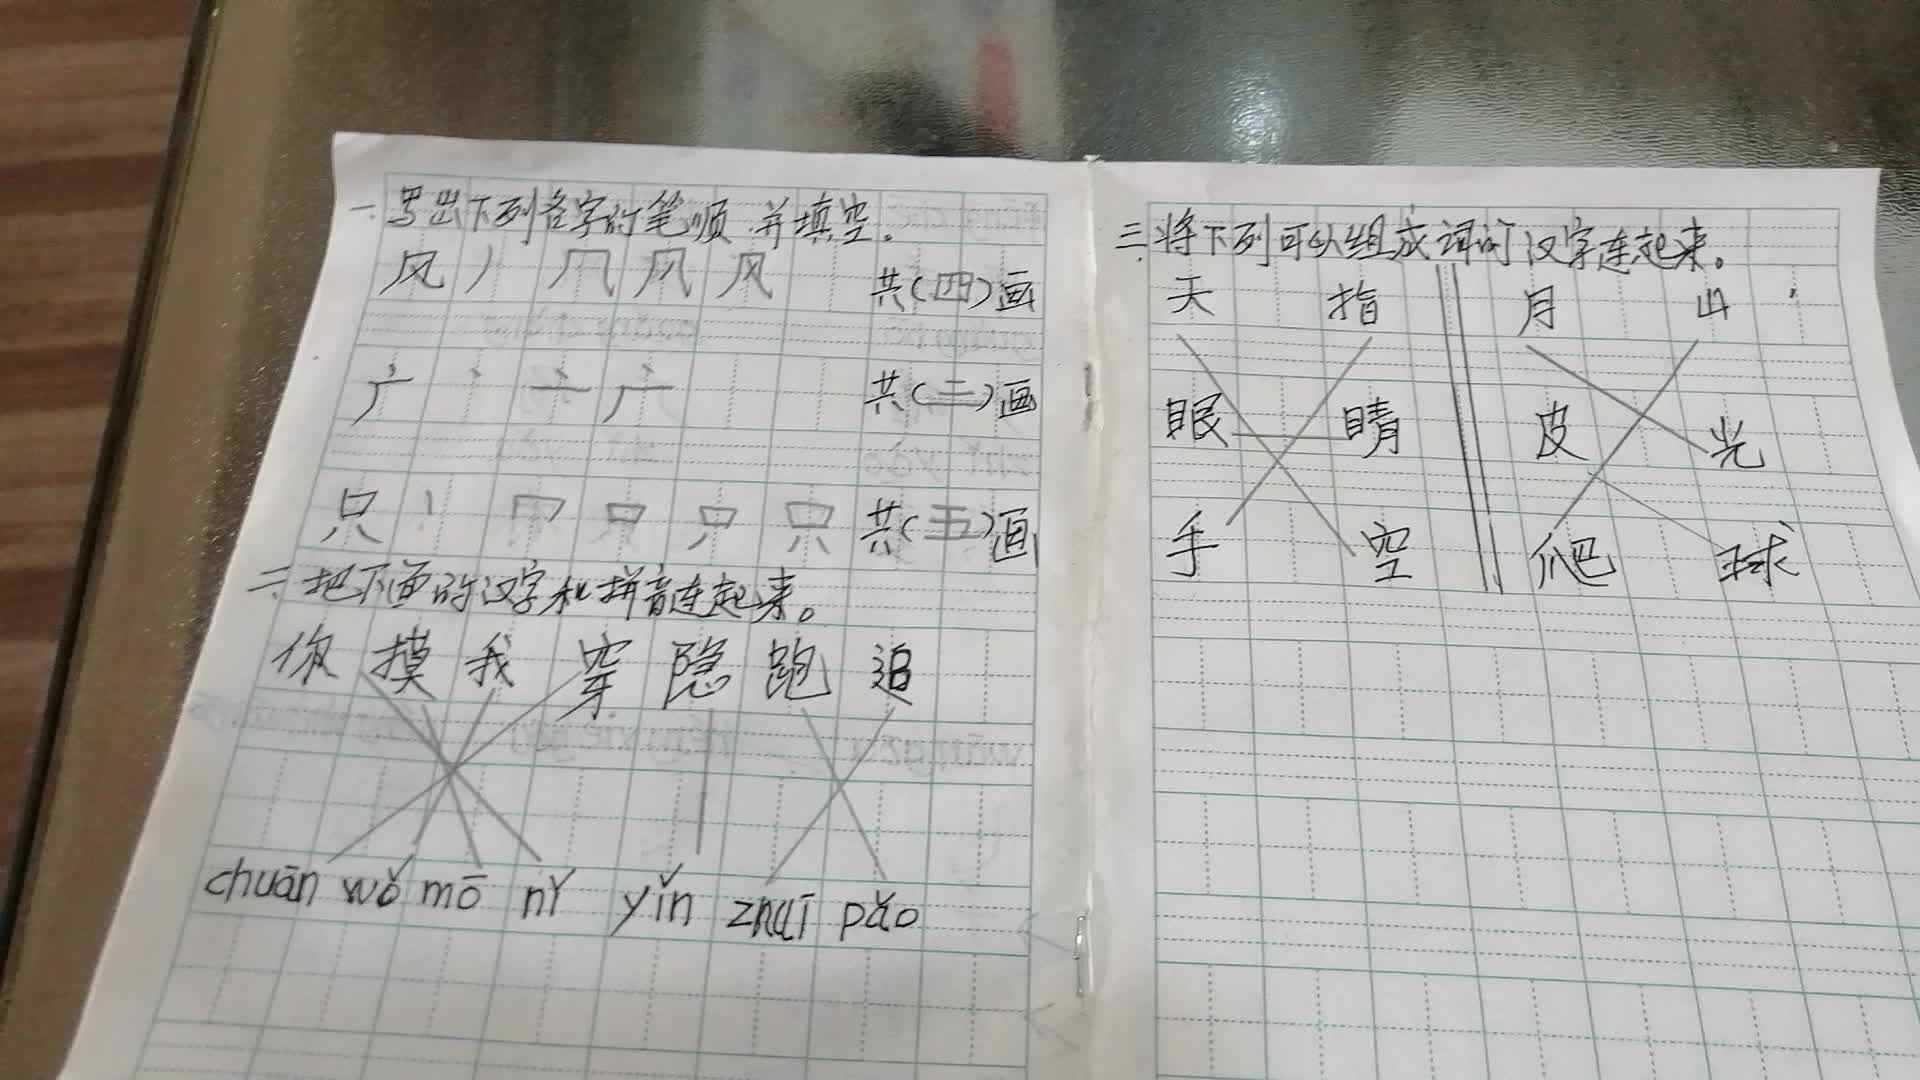 一.写出下列各字的笔顺,并填空。
风 丿 几 风 风 共(四)画
广 丶 亠 广 共(三)画
只 丨 冂 口 只 共(五)画
二.把下面的汉字和拼音连起来。
你 摸 我 穿 隐 跑 追
chuān wǒ mō nǐ yǐn zhuī pǎo
三.将下列可以组成词的汉字连起来。
天 指 月 山
眼 睛 皮 光
手 空 爬 球